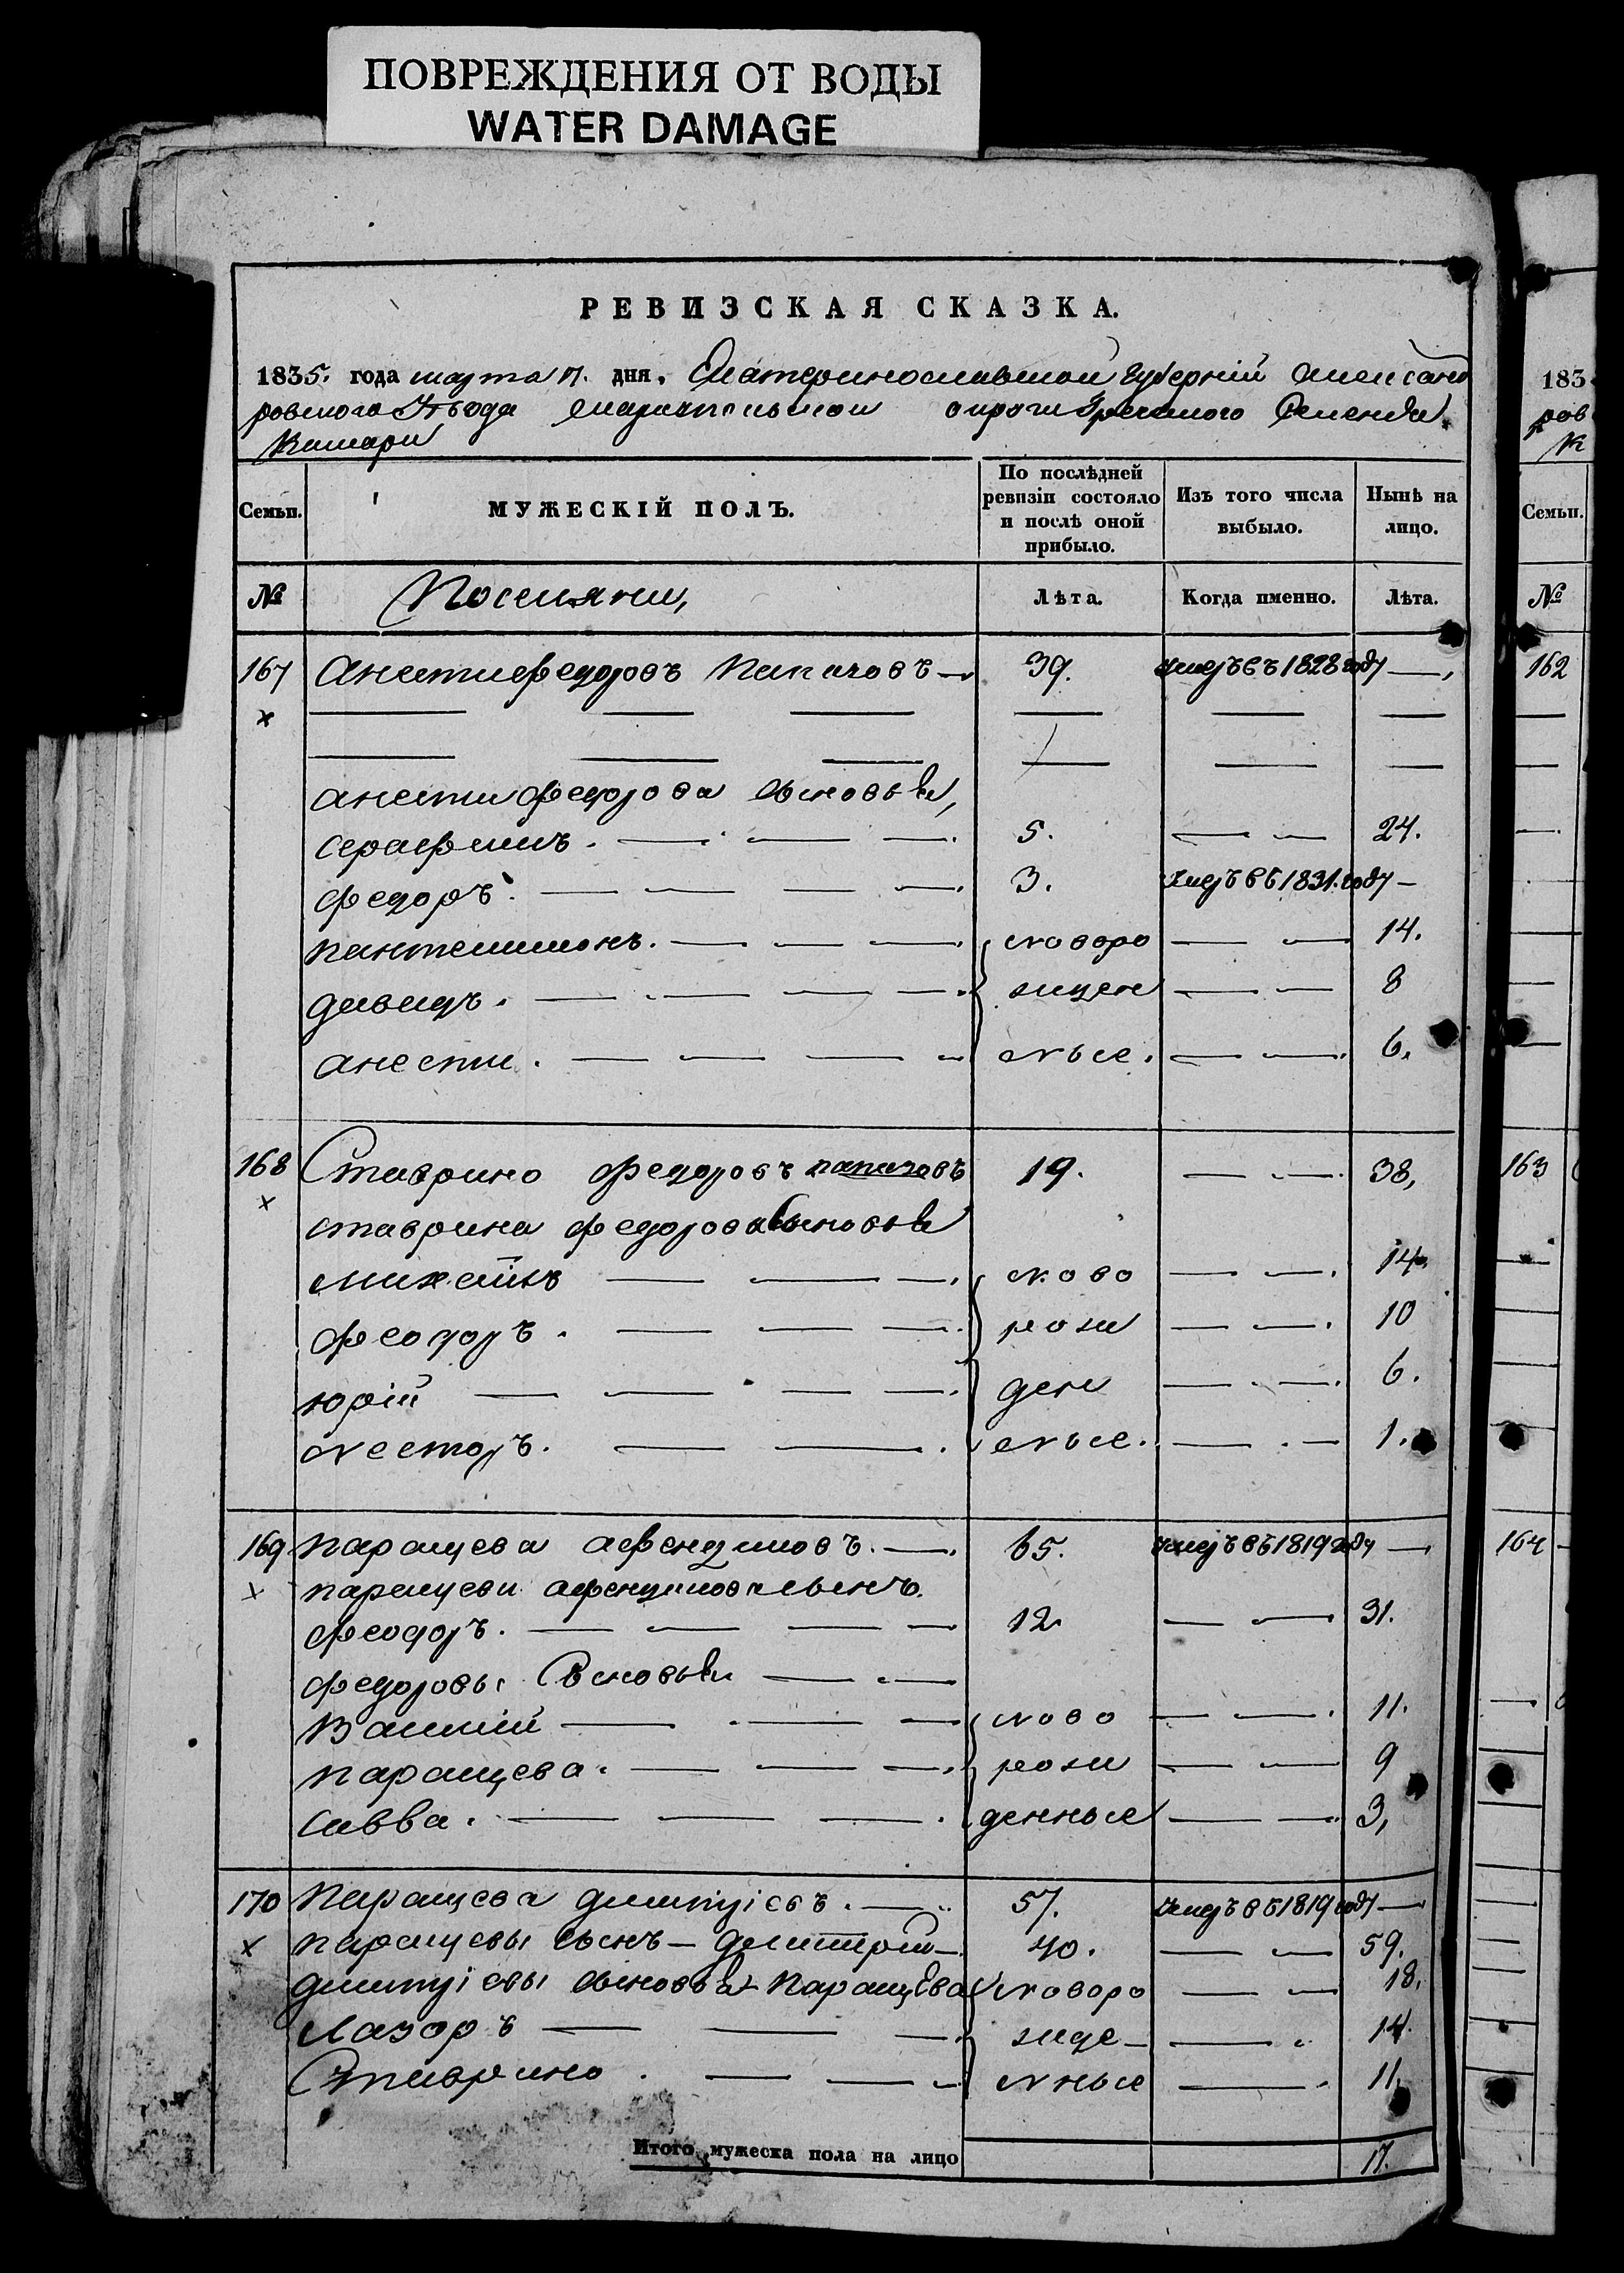 ПОВРЕЖДЕНИЯ ОТ ВОДЫ
WATER DAMAGE
РЕВИЗСКАЯ СКАЗКА.
1835. года марта 17. дня. Екатеринославской Губерніи Александ
ровского Уѣзда Мариупольской округи Греческого Селенія
Камари
Семьи.
МУЖЕСКІЙ ПОЛЪ.
По послѣдней ревизіи состояло и послѣ оной прибыло.
Изъ того числа выбыло.
Нынѣ на лицо.
№ Поселяни, Лѣта. Когда именно. Лѣта.
167 Анести Федоровъ 39. умеръ въ 1828 году
Анести Федорова сыновья,
Серафимъ. 5. 24.
Федоръ. 3. умеръ въ 1831. году
Пантелимонъ. новоро 14.
Давидъ. жден 8
Анести. ные. 6.
168 Ставрино Федоровъ 19. 38,
Ставрина Федорова сыновья
Михаилъ ново 14.
Феодоръ. рож 10
Юрій ден 6.
Несторъ. ные. 1.
169 Паращева 65. умеръ въ 1819 году
Паращевы сынъ.
Феодоръ. 12 31.
Федоровы Сыновья
Василій ново 11.
Паращева. рож 9
Савва. денные 3,
170 Паращева Дмитріевъ. 57. умеръ въ 1819 году
Паращевы сынъ Дмитрий 40. 59.
Дмитріевы сыновья Паращева новоро 18.
Лазоръ жде 14.
Ставрино. нные 11.
Итого мужеска пола на лицо 17.
183
ров
К
Семьи.
№
162
163
164